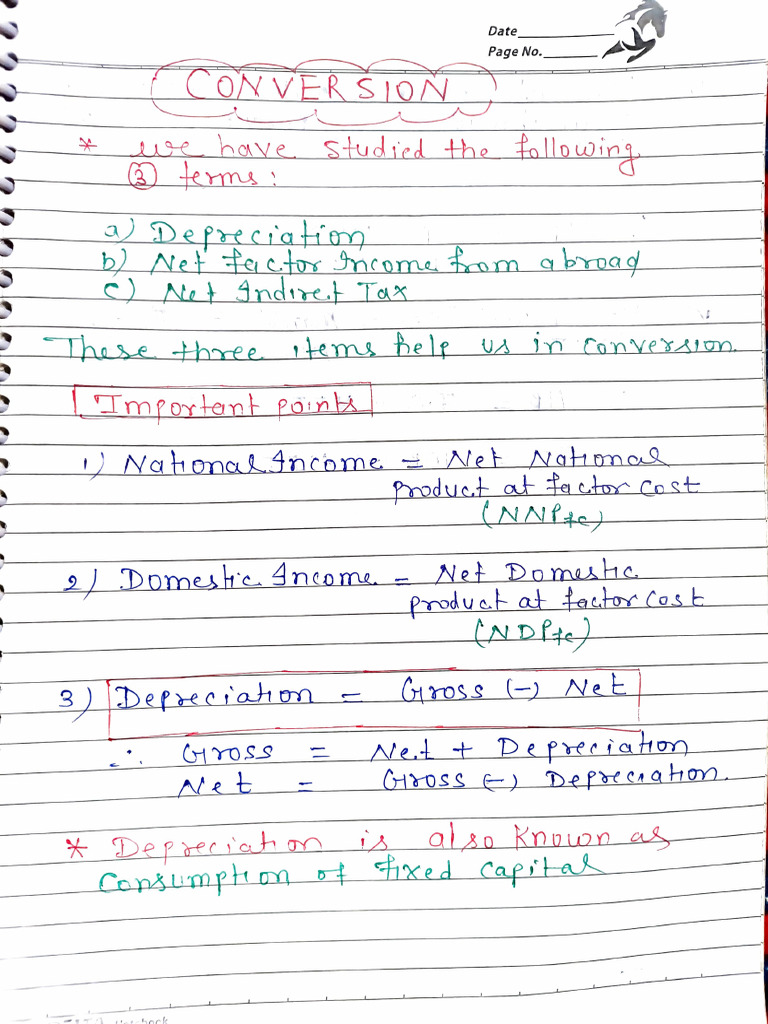 Date
Page No.
CONVERSION
* We have studied the following
③ terms :
a) Depreciation
b) Net factor Income from abroad
c) Net Indirect Tax
These three items help us in conversion.
Important points
1) National Income = Net National
product at factor cost
(NNPfc)
2) Domestic Income = Net Domestic
product at factor cost
(NDPfc)
3) Depreciation = Gross (-) Net
∴ Gross = Net + Depreciation
Net = Gross (-) Depreciation.
* Depreciation is also known as
consumption of fixed capital